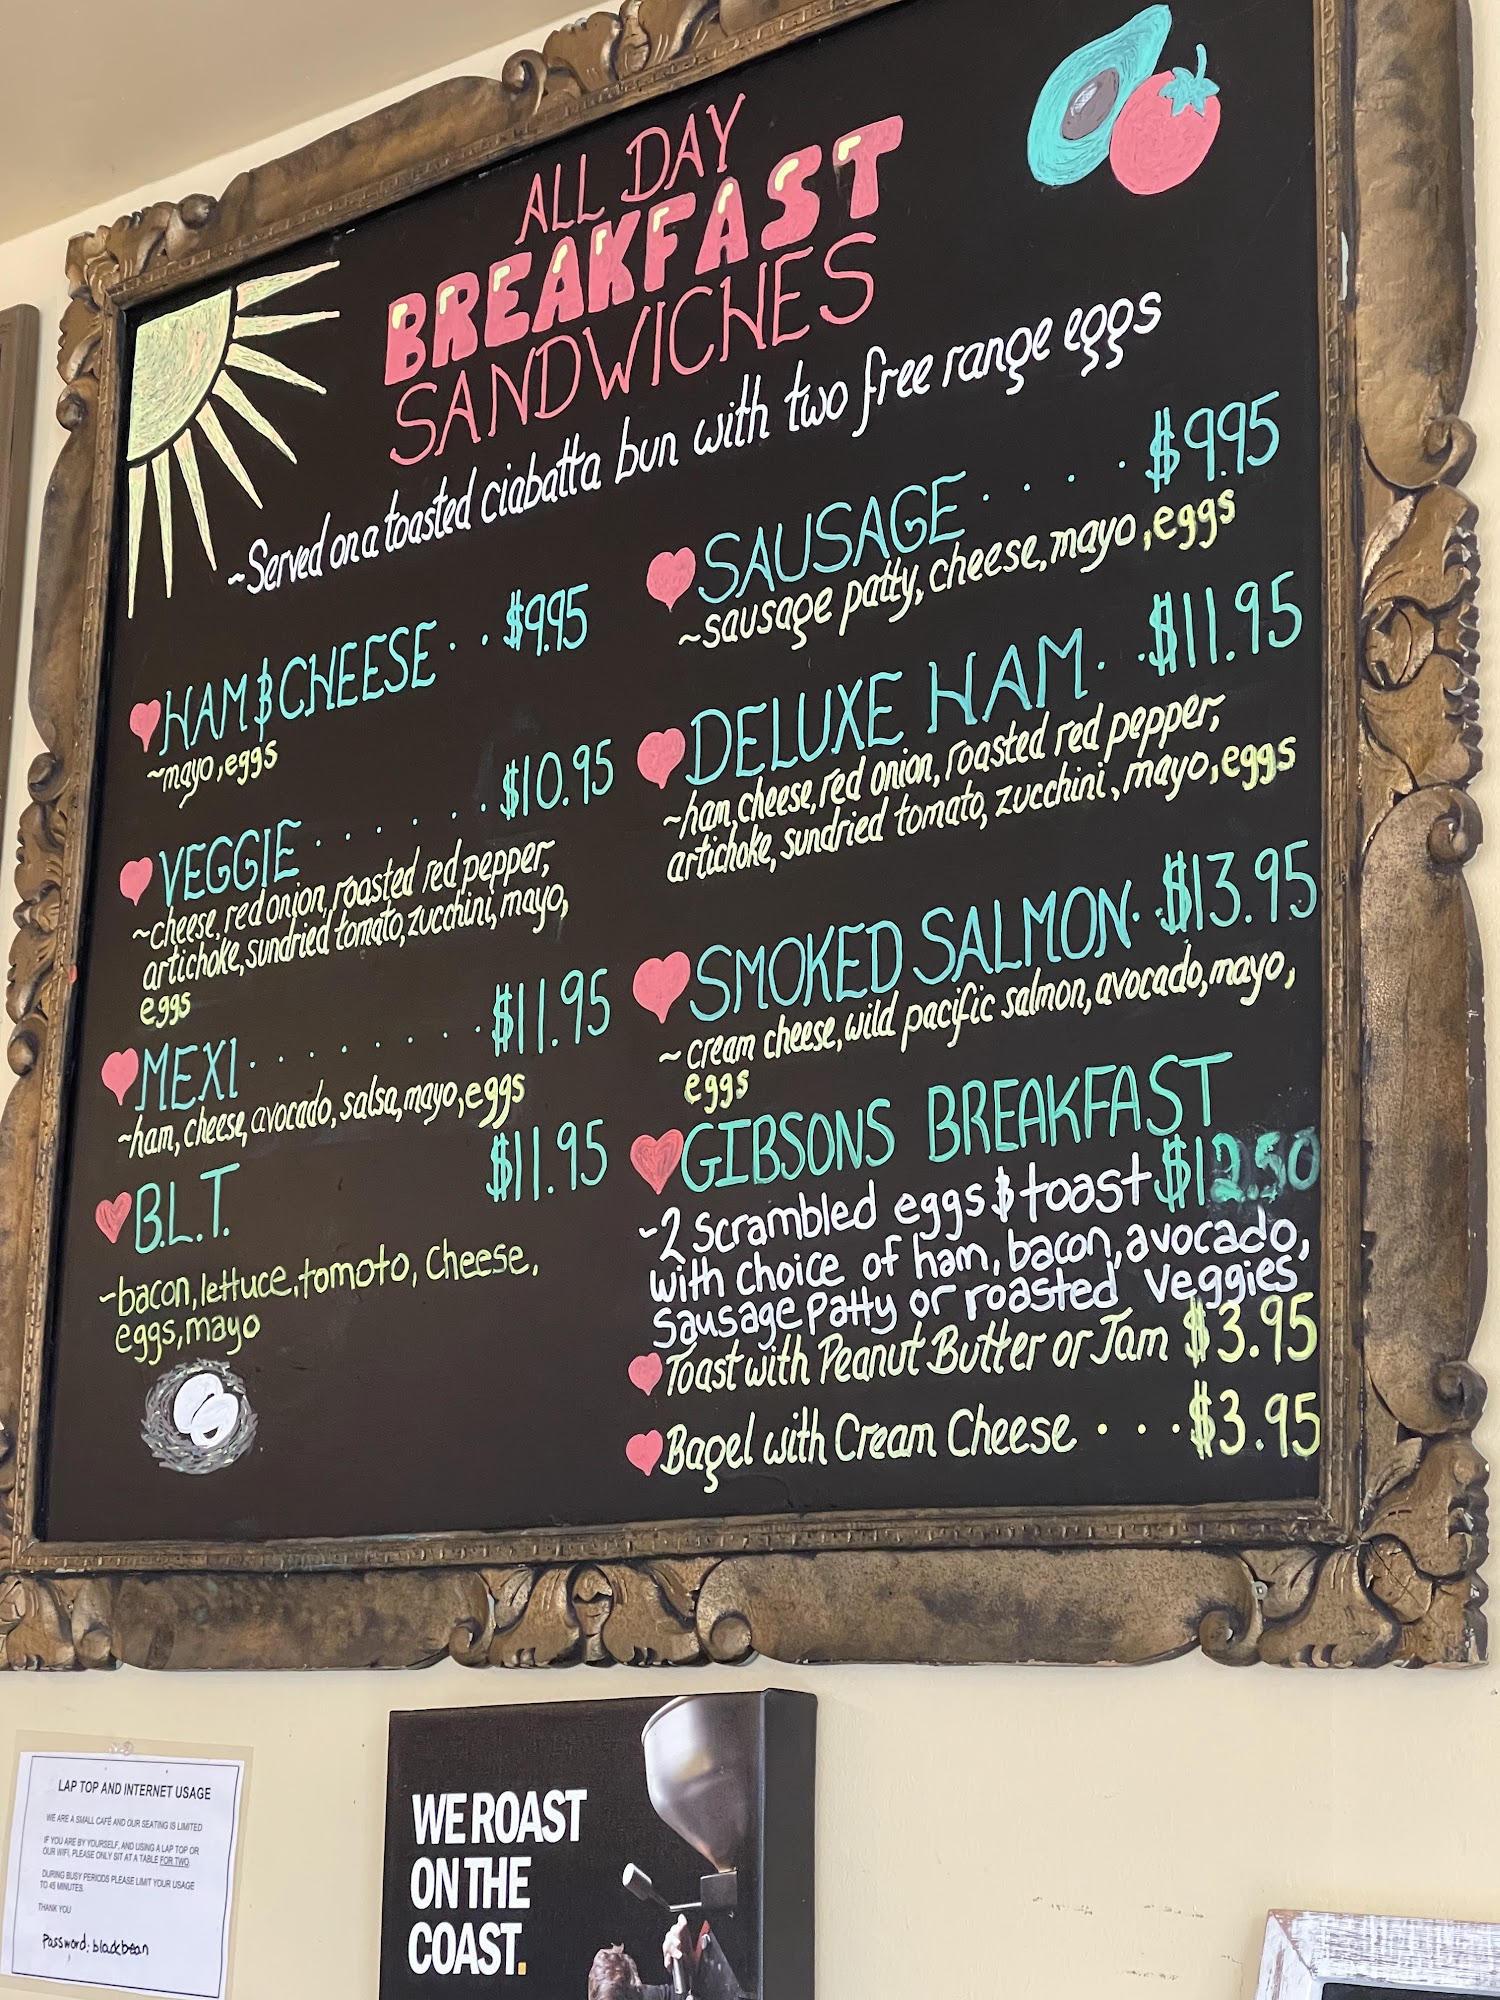 ALL DAY
BREAKFAST
SANDWICHES
~Served on a toasted ciabatta bun with two free range eggs
HAM & CHEESE . . $9.95
~mayo, eggs
VEGGIE . . . . . . $10.95
~cheese, red onion, roasted red pepper,
artichoke, sundried tomato, zucchini, mayo,
eggs
MEXI . . . . . . . . $11.95
~ham, cheese, avocado, salsa, mayo, eggs
B.L.T. $11.95
~bacon, lettuce, tomoto, cheese,
eggs, mayo
SAUSAGE . . . . $9.95
~sausage patty, cheese, mayo, eggs
DELUXE HAM . . $11.95
~ham, cheese, red onion, roasted red pepper,
artichoke, sundried tomato, zucchini, mayo, eggs
SMOKED SALMON . . $13.95
~ cream cheese, wild pacific salmon, avocado, mayo,
eggs
GIBSONS BREAKFAST
~2 scrambled eggs & toast $12.50
with choice of ham, bacon, avocado,
sausage patty or roasted veggies
Toast with Peanut Butter or Jam $3.95
Bagel with Cream Cheese . . . $3.95
LAP TOP AND INTERNET USAGE
WE ARE A SMALL CAFÉ AND OUR SEATING IS LIMITED
IF YOU ARE BY YOURSELF, AND USING A LAP TOP OR
OUR WIFI, PLEASE ONLY SIT AT A TABLE FOR TWO.
DURING BUSY PERIODS PLEASE LIMIT YOUR USAGE
TO 45 MINUTES.
THANK YOU
Password: blackbean
WE ROAST
ON THE
COAST.